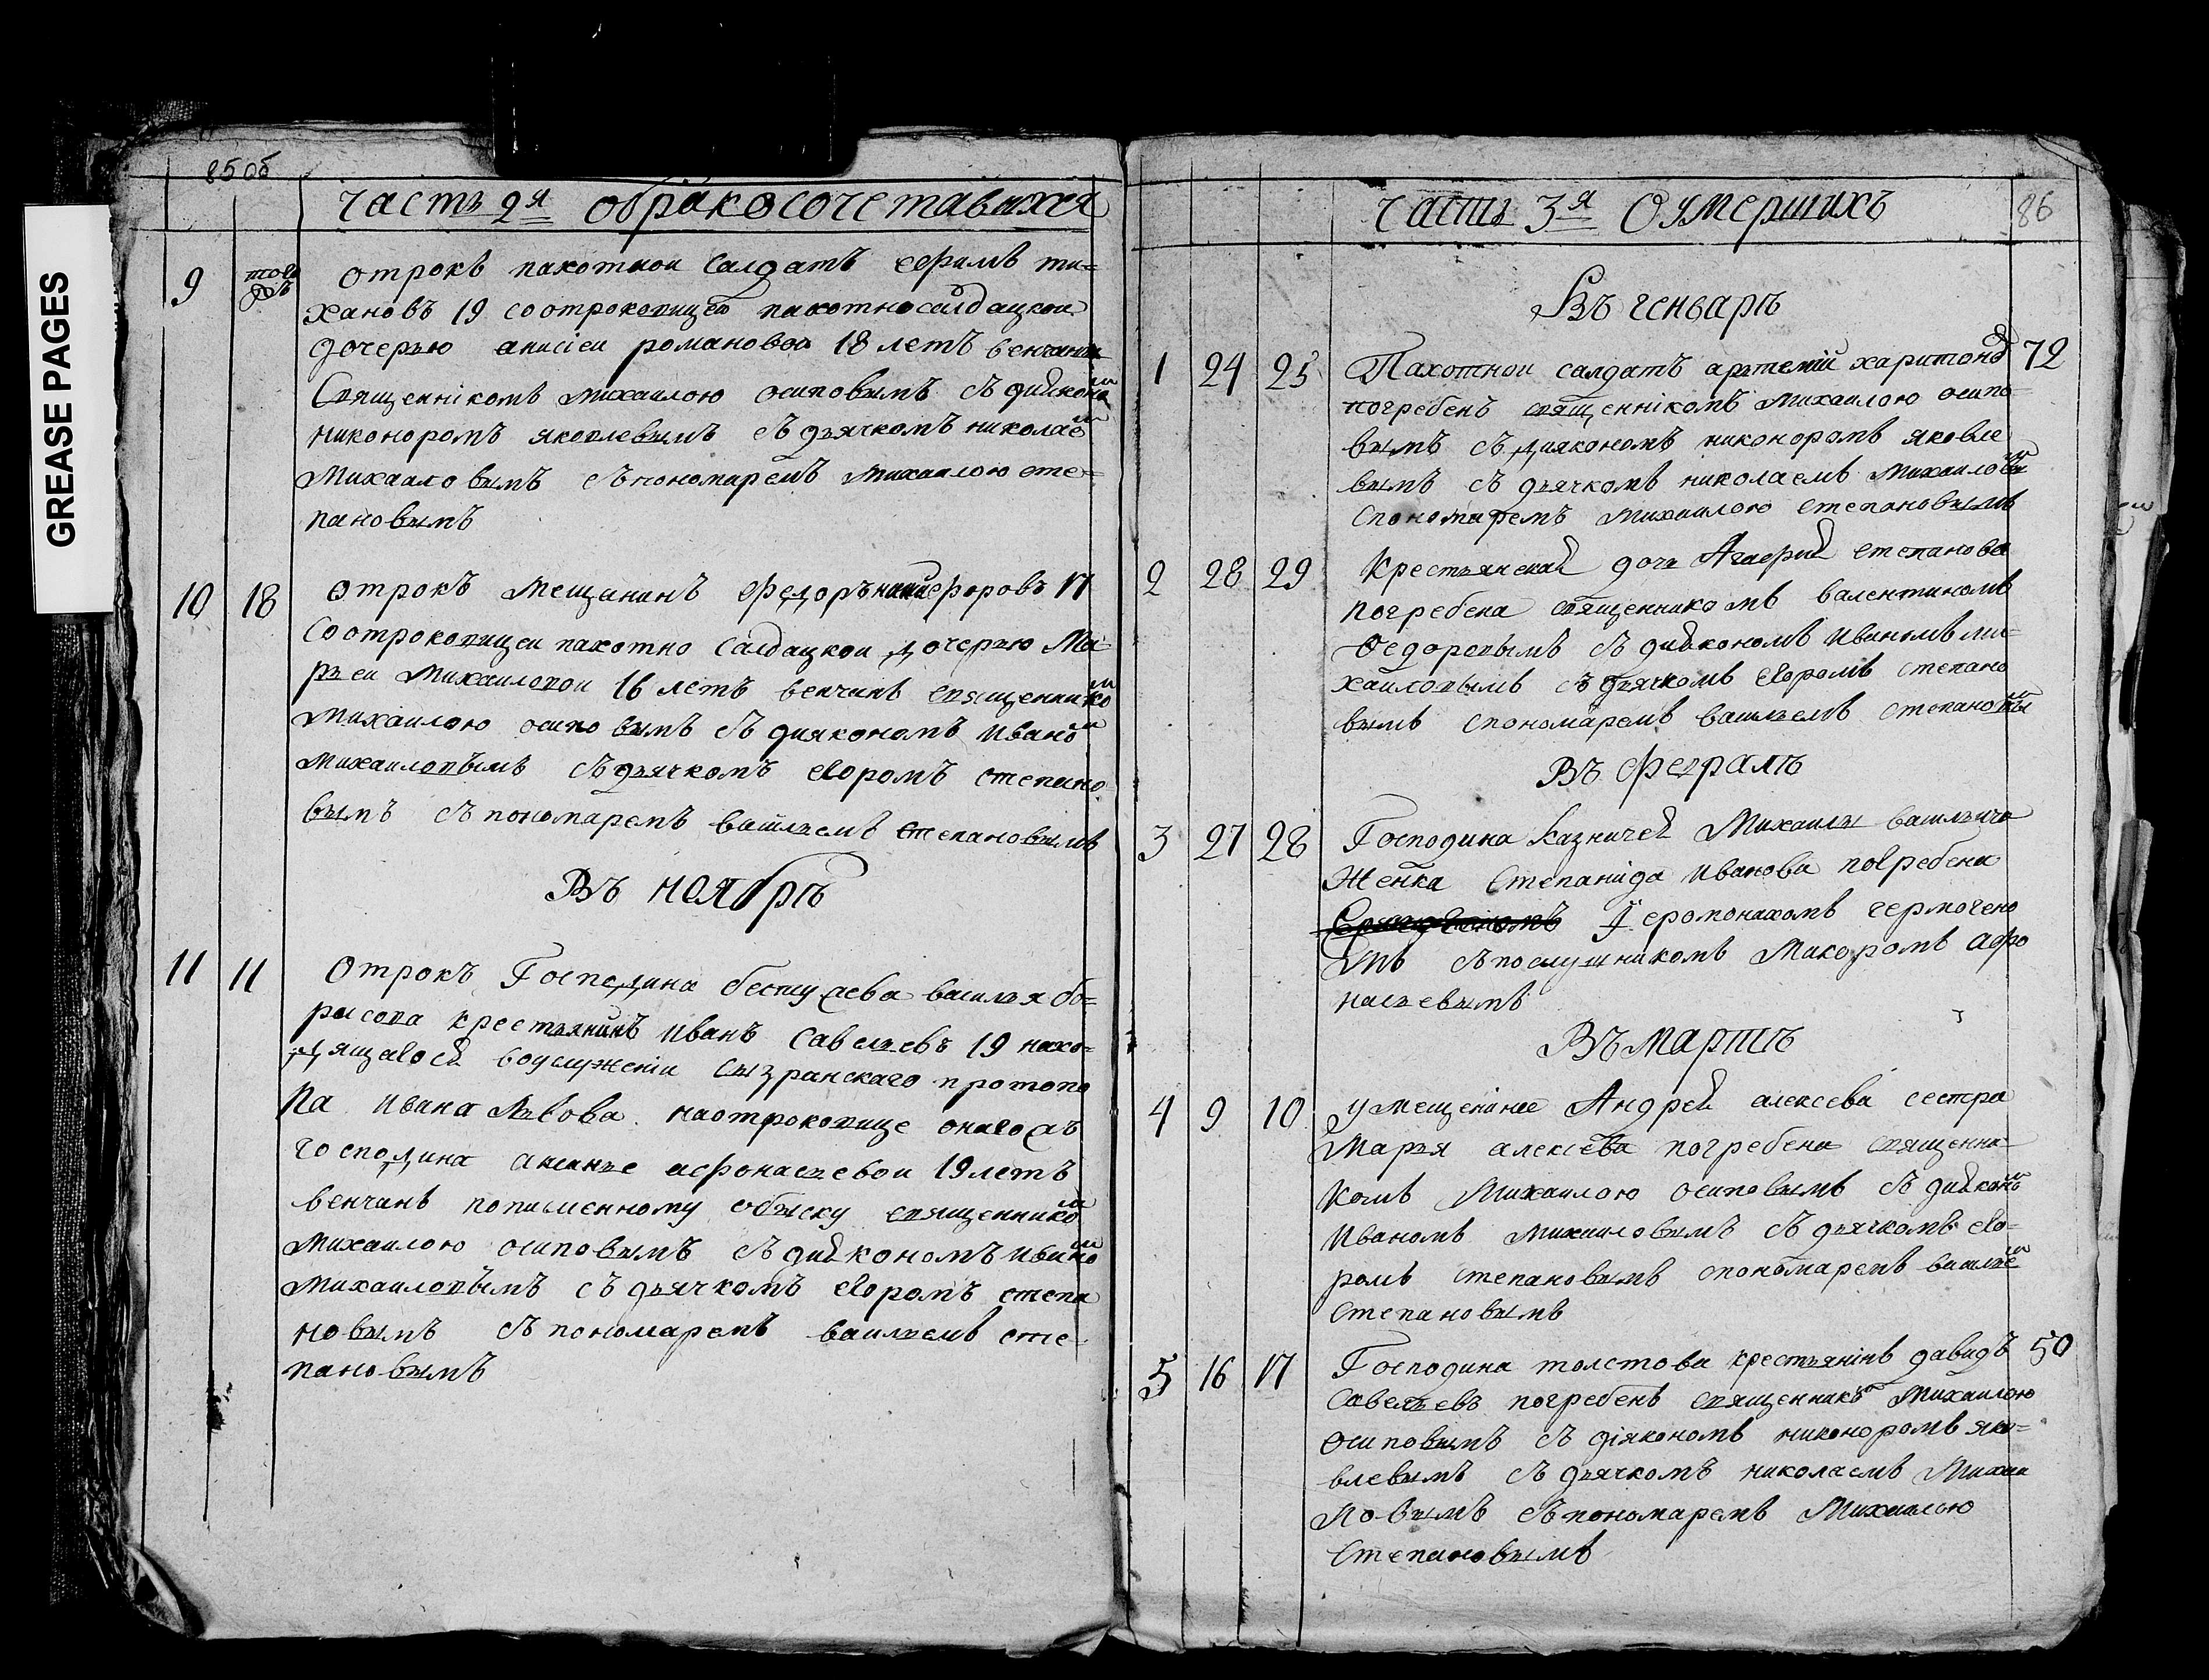 GREASE PAGES
85 об
часть 2я обракосочетавихся
9 того ж отрокъ пахотнои салдатъ ефимъ ти=
хановъ 19 соотроковицею пахотносалдацкои
дочерью анисіеи романовои 18 летъ венчаны
священнікомъ михаилою осиповымъ съ дияконом
никоноромъ яковлевымъ съ дьячкомъ николаем
михаиловымъ съ пономаремъ михаилою сте=
пановымъ
10 18 отрокъ мещанинъ федоръ никифоровъ 17
соотроковицеи пахотно салдацкои дочерью ма
рьеи михаиловои 16 летъ венчанъ священником
михаилою осиповымъ съ диякономъ иваном
михаиловымъ съ дьячкомъ егоромъ степано
вымъ съ пономаремъ васильемъ степановымъ
Въ ноябрѣ
11 11 отрокъ господина бестужева василья бо=
рисова крестьянинъ иванъ савельевъ 19 нахо=
дящагося воуслуженіи сызранскаго протопо
па ивана львова наотроковице онагожъ
господина аксинье афонасьевои 19 летъ
венчанъ пописменному обыску священником
михаилою осиповымъ съ дияконом ивано
михаиловымъ съ дьячкомъ егоромъ степа
новымъ съ пономаремъ васильемъ сте
пановымъ
часть 3я Оумершихъ 86
Въ генварѣ
1 24 25 Пахотнои салдатъ артемій харитоновъ 72
погребенъ священнікомъ михаилою осипо
вымъ съ дияконом никоноромъ яковле
вымъ съ дьячкомъ николаемъ михаиловым
спономаремъ михаилою степановымъ
2 28 29 Крестьянская дочь Агафия степанова
погребена священникомъ валентиномъ
Федоровымъ съ дияконом иваномъ ми=
хаиловымъ съ дьячкомъ егоромъ степано
вымъ спономаремъ васильемъ степановым
Въ февралѣ
3 27 28 Господина казначея михаилы васильича
женка степанида иванова погребена
Іеромонахомъ гермогено
мъ съ послушникомъ макаромъ афо
насьевымъ
Въ мартѣ
4 9 10 умещенина Андрея алексева сестра
марья алексева погребена священни
комъ михаилою осиповымъ съ дияконом
иваномъ михаиловымъ съ дьячкомъ его=
ромъ степановымъ спономаремъ василье
степановымъ
5 16 17 Господина толстова крестьянінъ давидъ 50
савельевъ погребенъ священником михаилою
осиповымъ съ діяконом никоноромъ яко=
влевымъ съ дьячкомъ николаемъ михаи
ловымъ съ пономаремъ михаилою
степановымъ